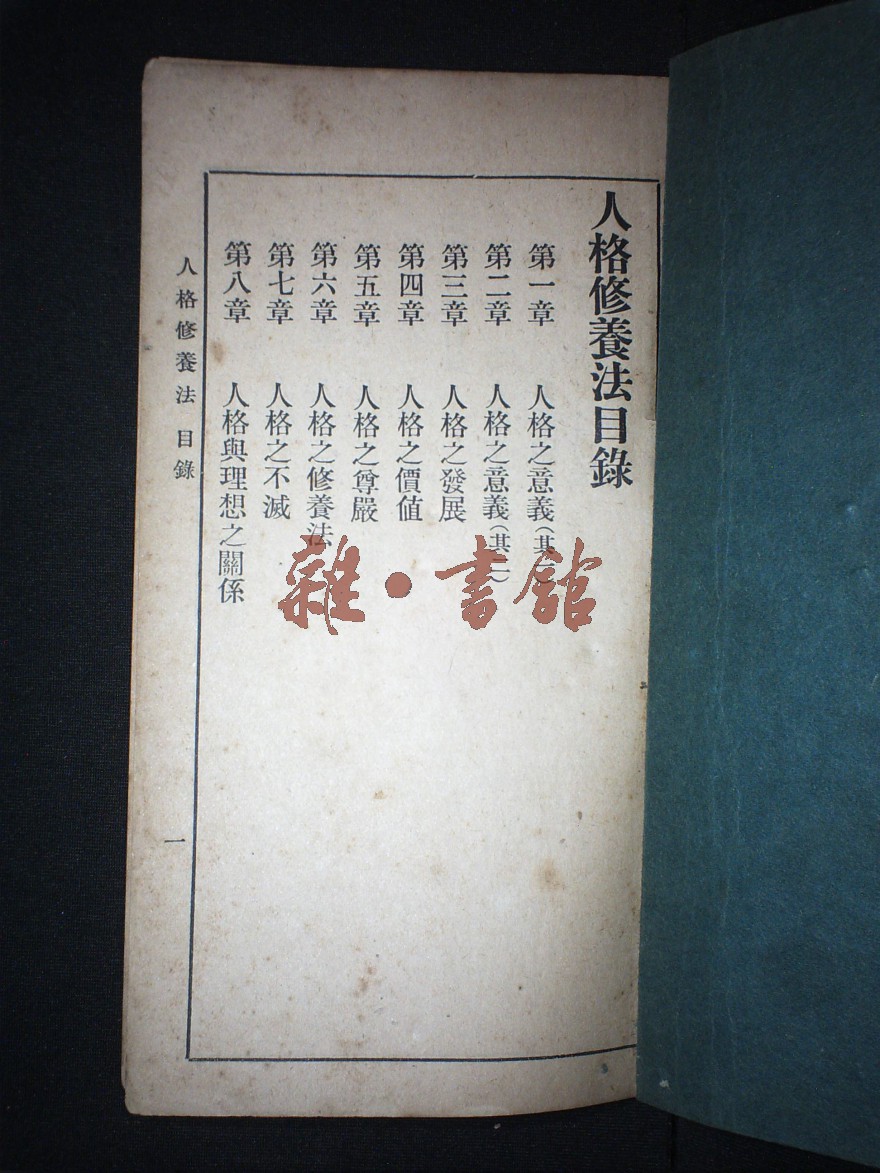 人格修養法目錄
第一章 人格之意義(其一)
第二章 人格之意義(其二)
第三章 人格之發展
第四章 人格之價値
第五章 人格之尊嚴
第六章 人格之修養法
第七章 人格之不滅
第八章 人格與理想之關係
人格修養法 目錄
一
雜·書館